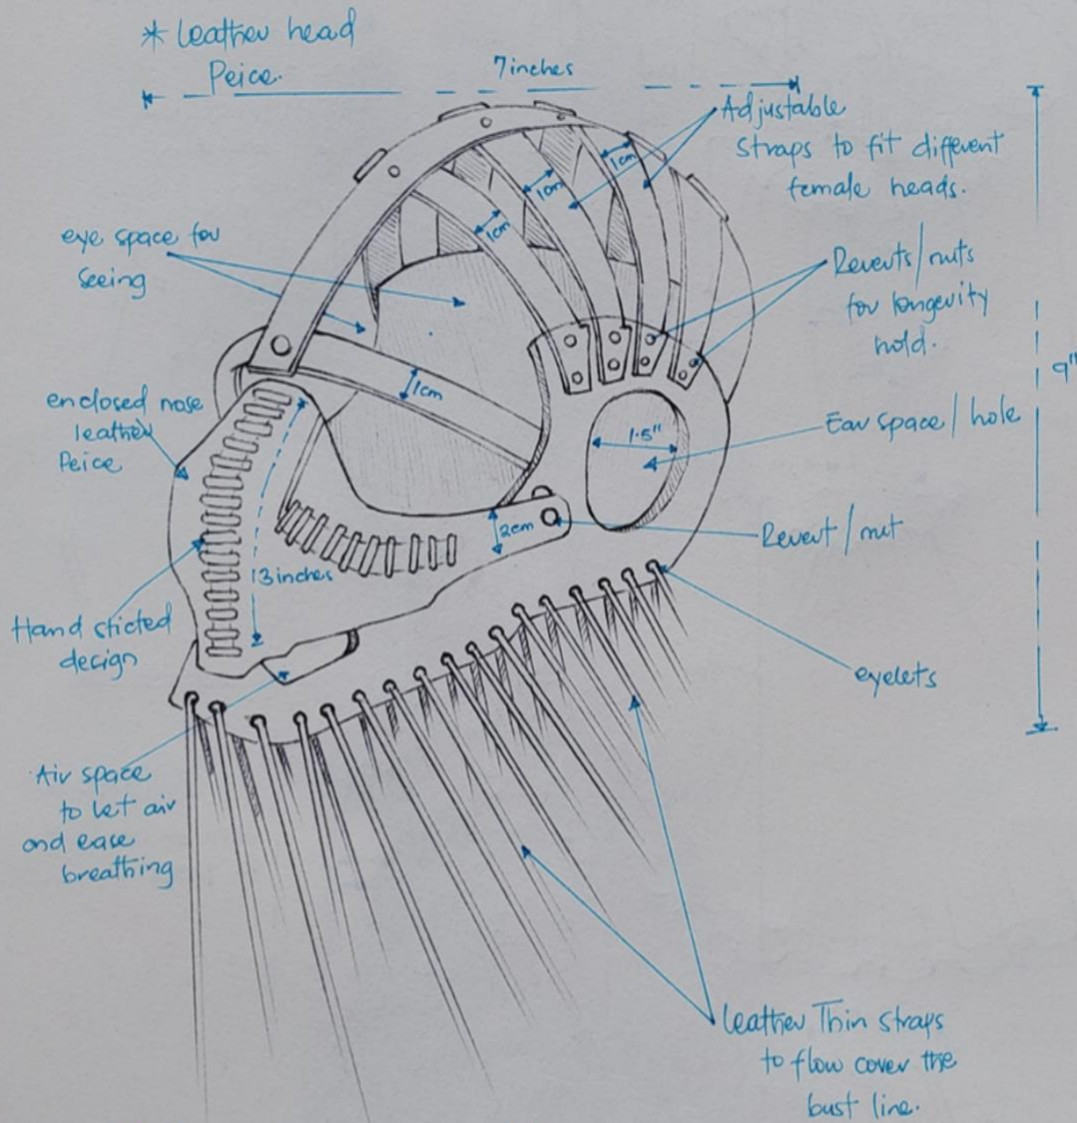 * Leather head
Peice.
7 inches
Adjustable
Straps to fit different
female heads.
1cm
1cm
1cm
eye space for
seeing
Reverts/nuts
for longevity
hold.
9"
1cm
enclosed nose
leather
Peice
1.5"
Ear space / hole
2cm
Revert / nut
13 inches
Hand sticted
design
eyelets
Air space
to let air
and ease
breathing
leather Thin straps
to flow cover the
bust line.